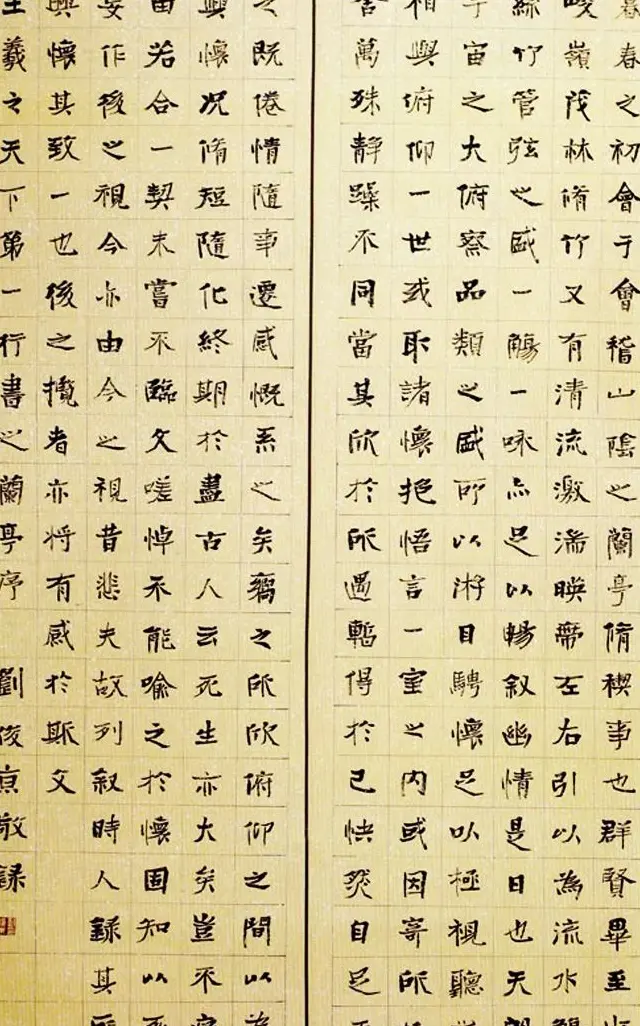 暮春之初會于會稽山陰之蘭亭脩禊事也群賢畢至
峻嶺茂林脩竹又有清流激湍暎帶左右引以為流水
絲竹管弦之盛一觴一咏亦足以暢叙幽情是日也天朗
宇宙之大俯察品類之盛所以游目騁懷足以極視聽
相與俯仰一世或取諸懷抱悟言一室之内或因寄所
舍萬殊静躁不同當其欣於所遇暫得於己快然自足
之既倦情隨事遷感慨系之矣嚮之所欣俯仰之間以為
興懷况脩短隨化終期於盡古人云死生亦大矣豈不
由若合一契未嘗不臨文嗟悼不能喻之於懷固知以死
妄作後之視今亦由今之視昔悲夫故列叙時人録其所
興懷其致一也後之攬者亦將有感於斯文
王羲之天下第一行書之蘭亭序 劉俊京敬録